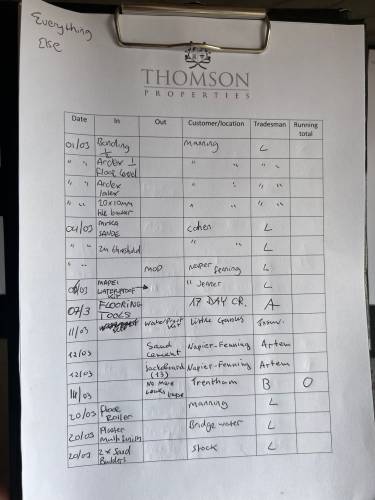 Everything
Else
THOMSON
PROPERTIES
Date In Out Customer/location Tradesman Running total
01/03 Bonding Manning L
" " Ardex 1 " " " "
floor level
" " Ardex " " " "
latex
" " 20x10mm " " " "
tile
04/03 Mirka cohen L
" " 2m threshold " " L
" " MOD napier fenning L
MAPEI " Jenner L
WATERPROOF
KIT
07/3 FLOORING 17 DAY CR. A
TOOLS
11/03 waterproof kit Little
12/03 Sand Napier-Fenning Artem
cement
12/03 Jackoboard Napier-Fenning Artem
(13)
No More Trenthom B O
20/03 Floor Manning L
Roller
20/03 Plaster Bridge water L
Multi finish
20/03 2 x Sand Stock L
Builders